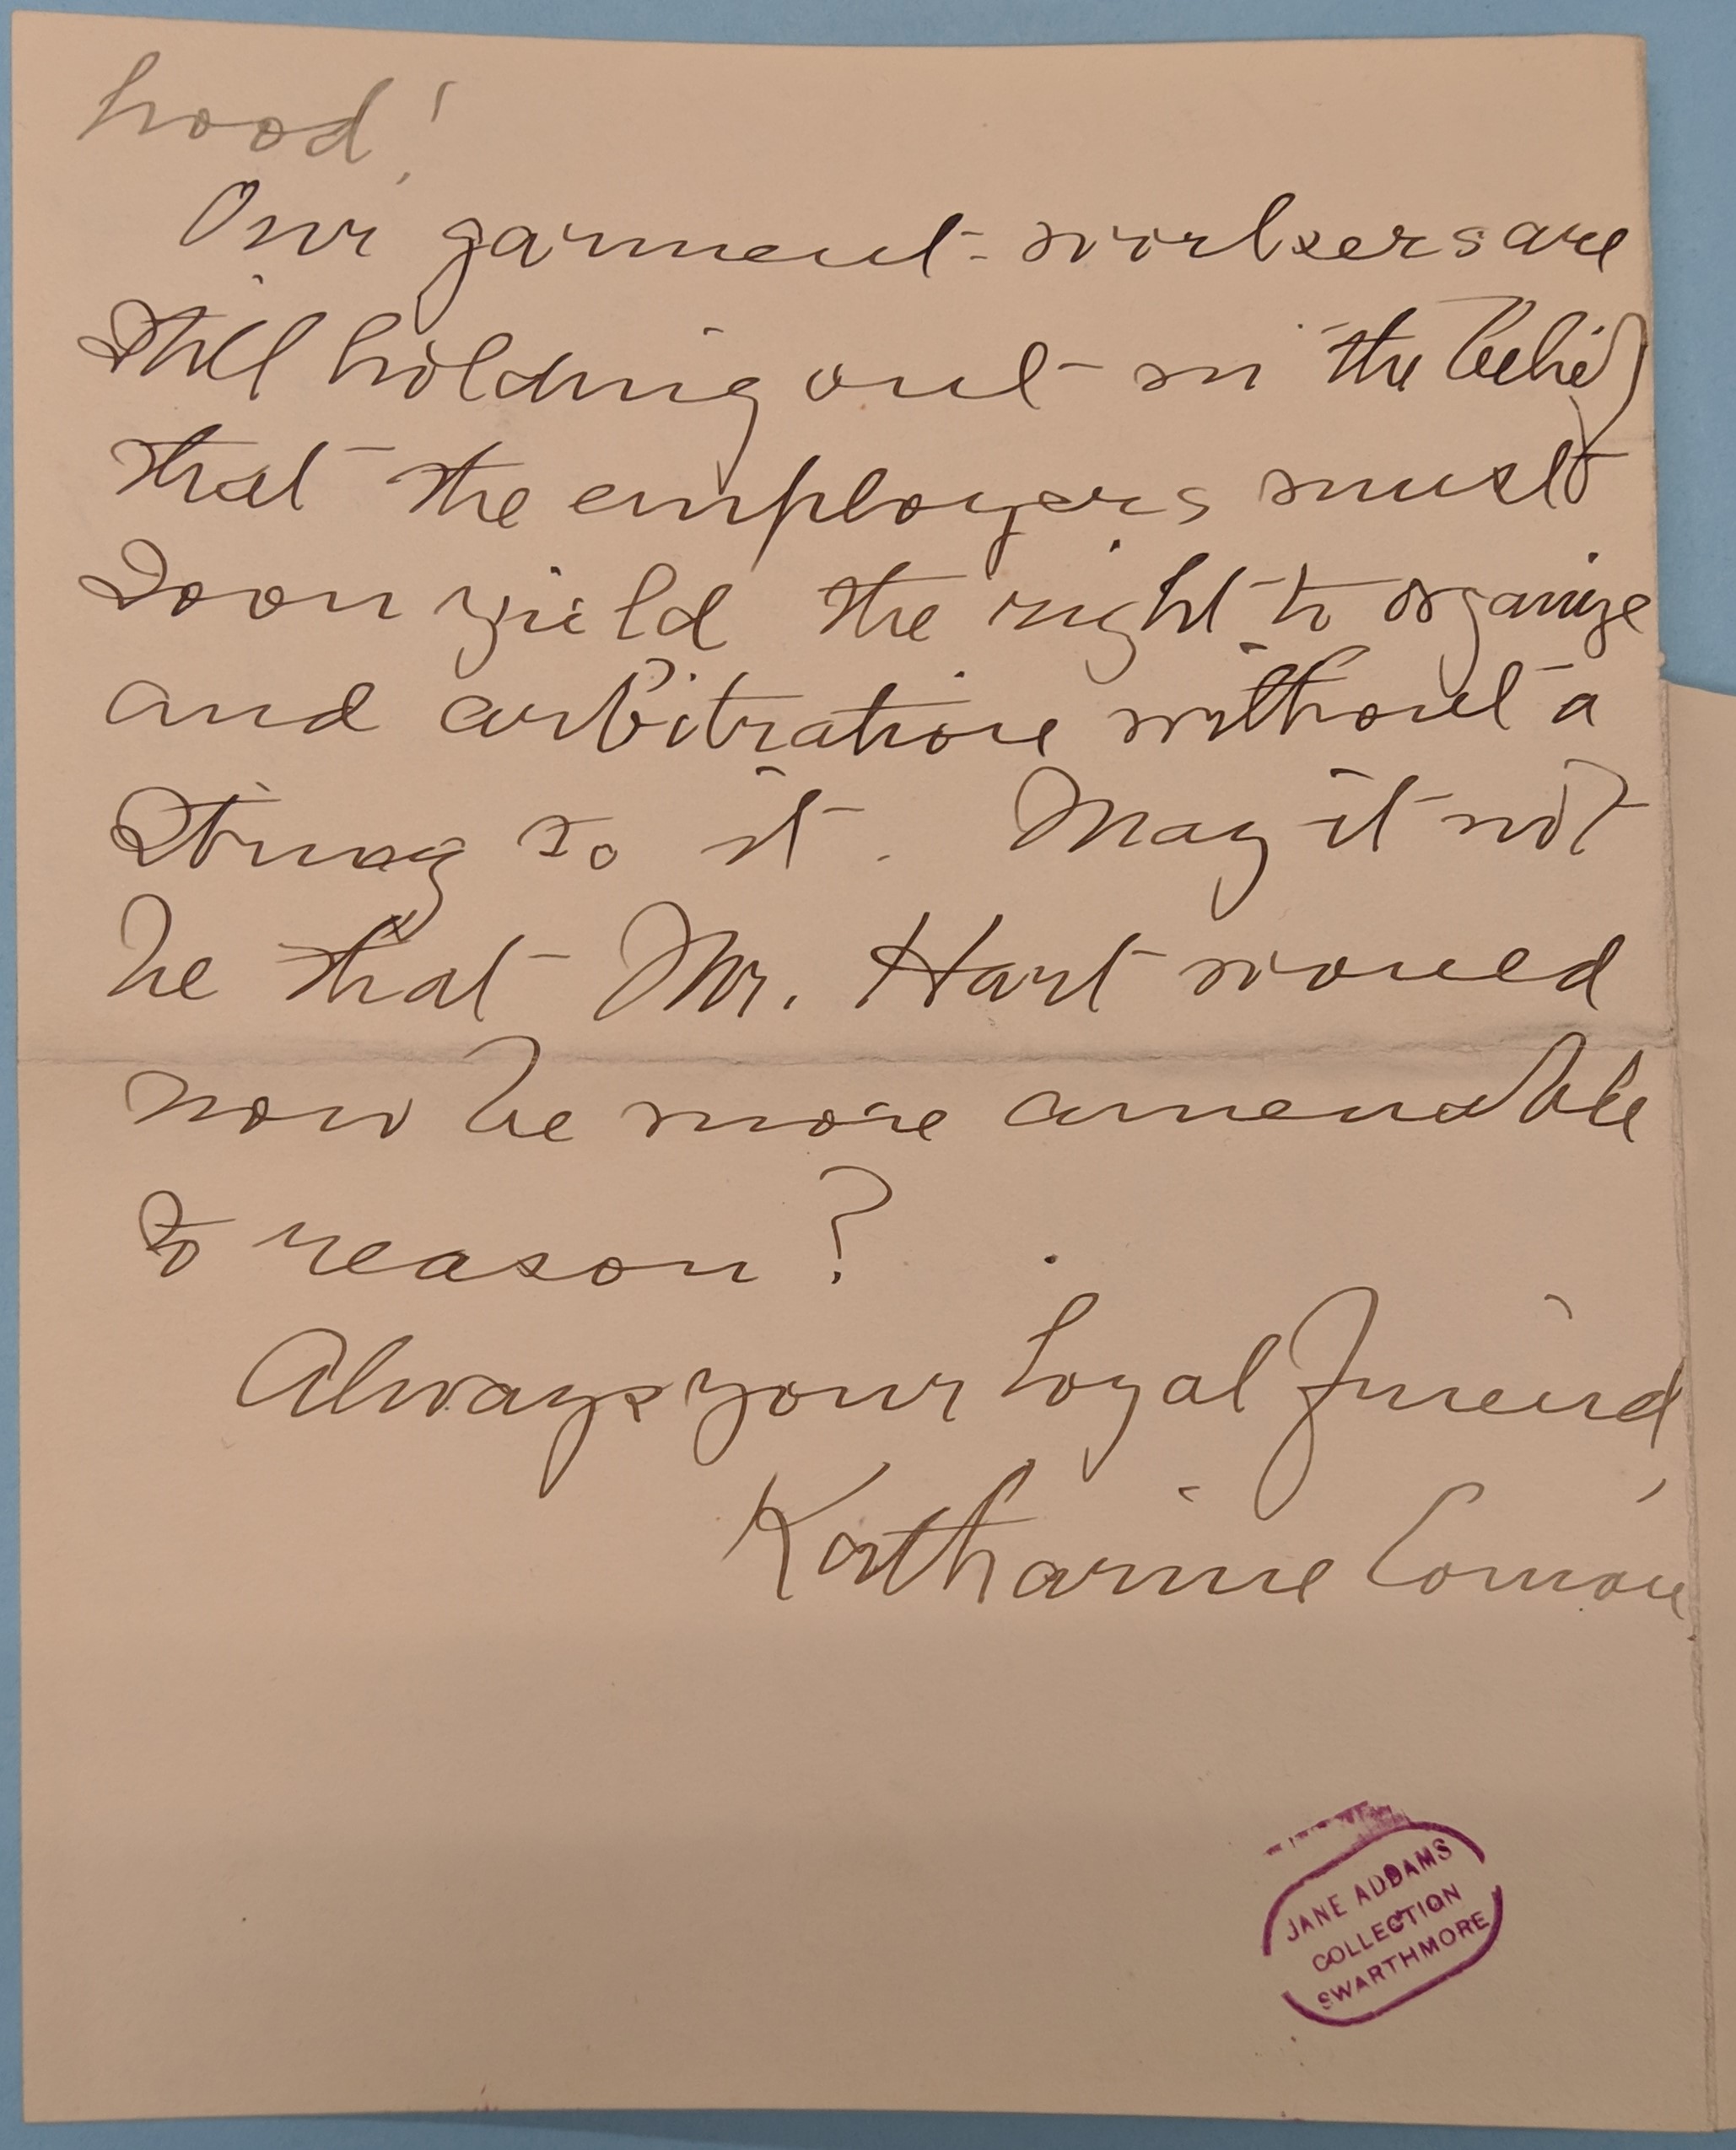 hood!
Our garment-workers are
still holding out in the belief
that the employers must
soon yield the right to organize
and arbitration without a
string to it. May it not
be that Mr. Hart would
now be more amenable
to reason?
Always your loyal friend,
Katharine Coman
JANE ADDAMS
COLLECTION
SWARTHMORE